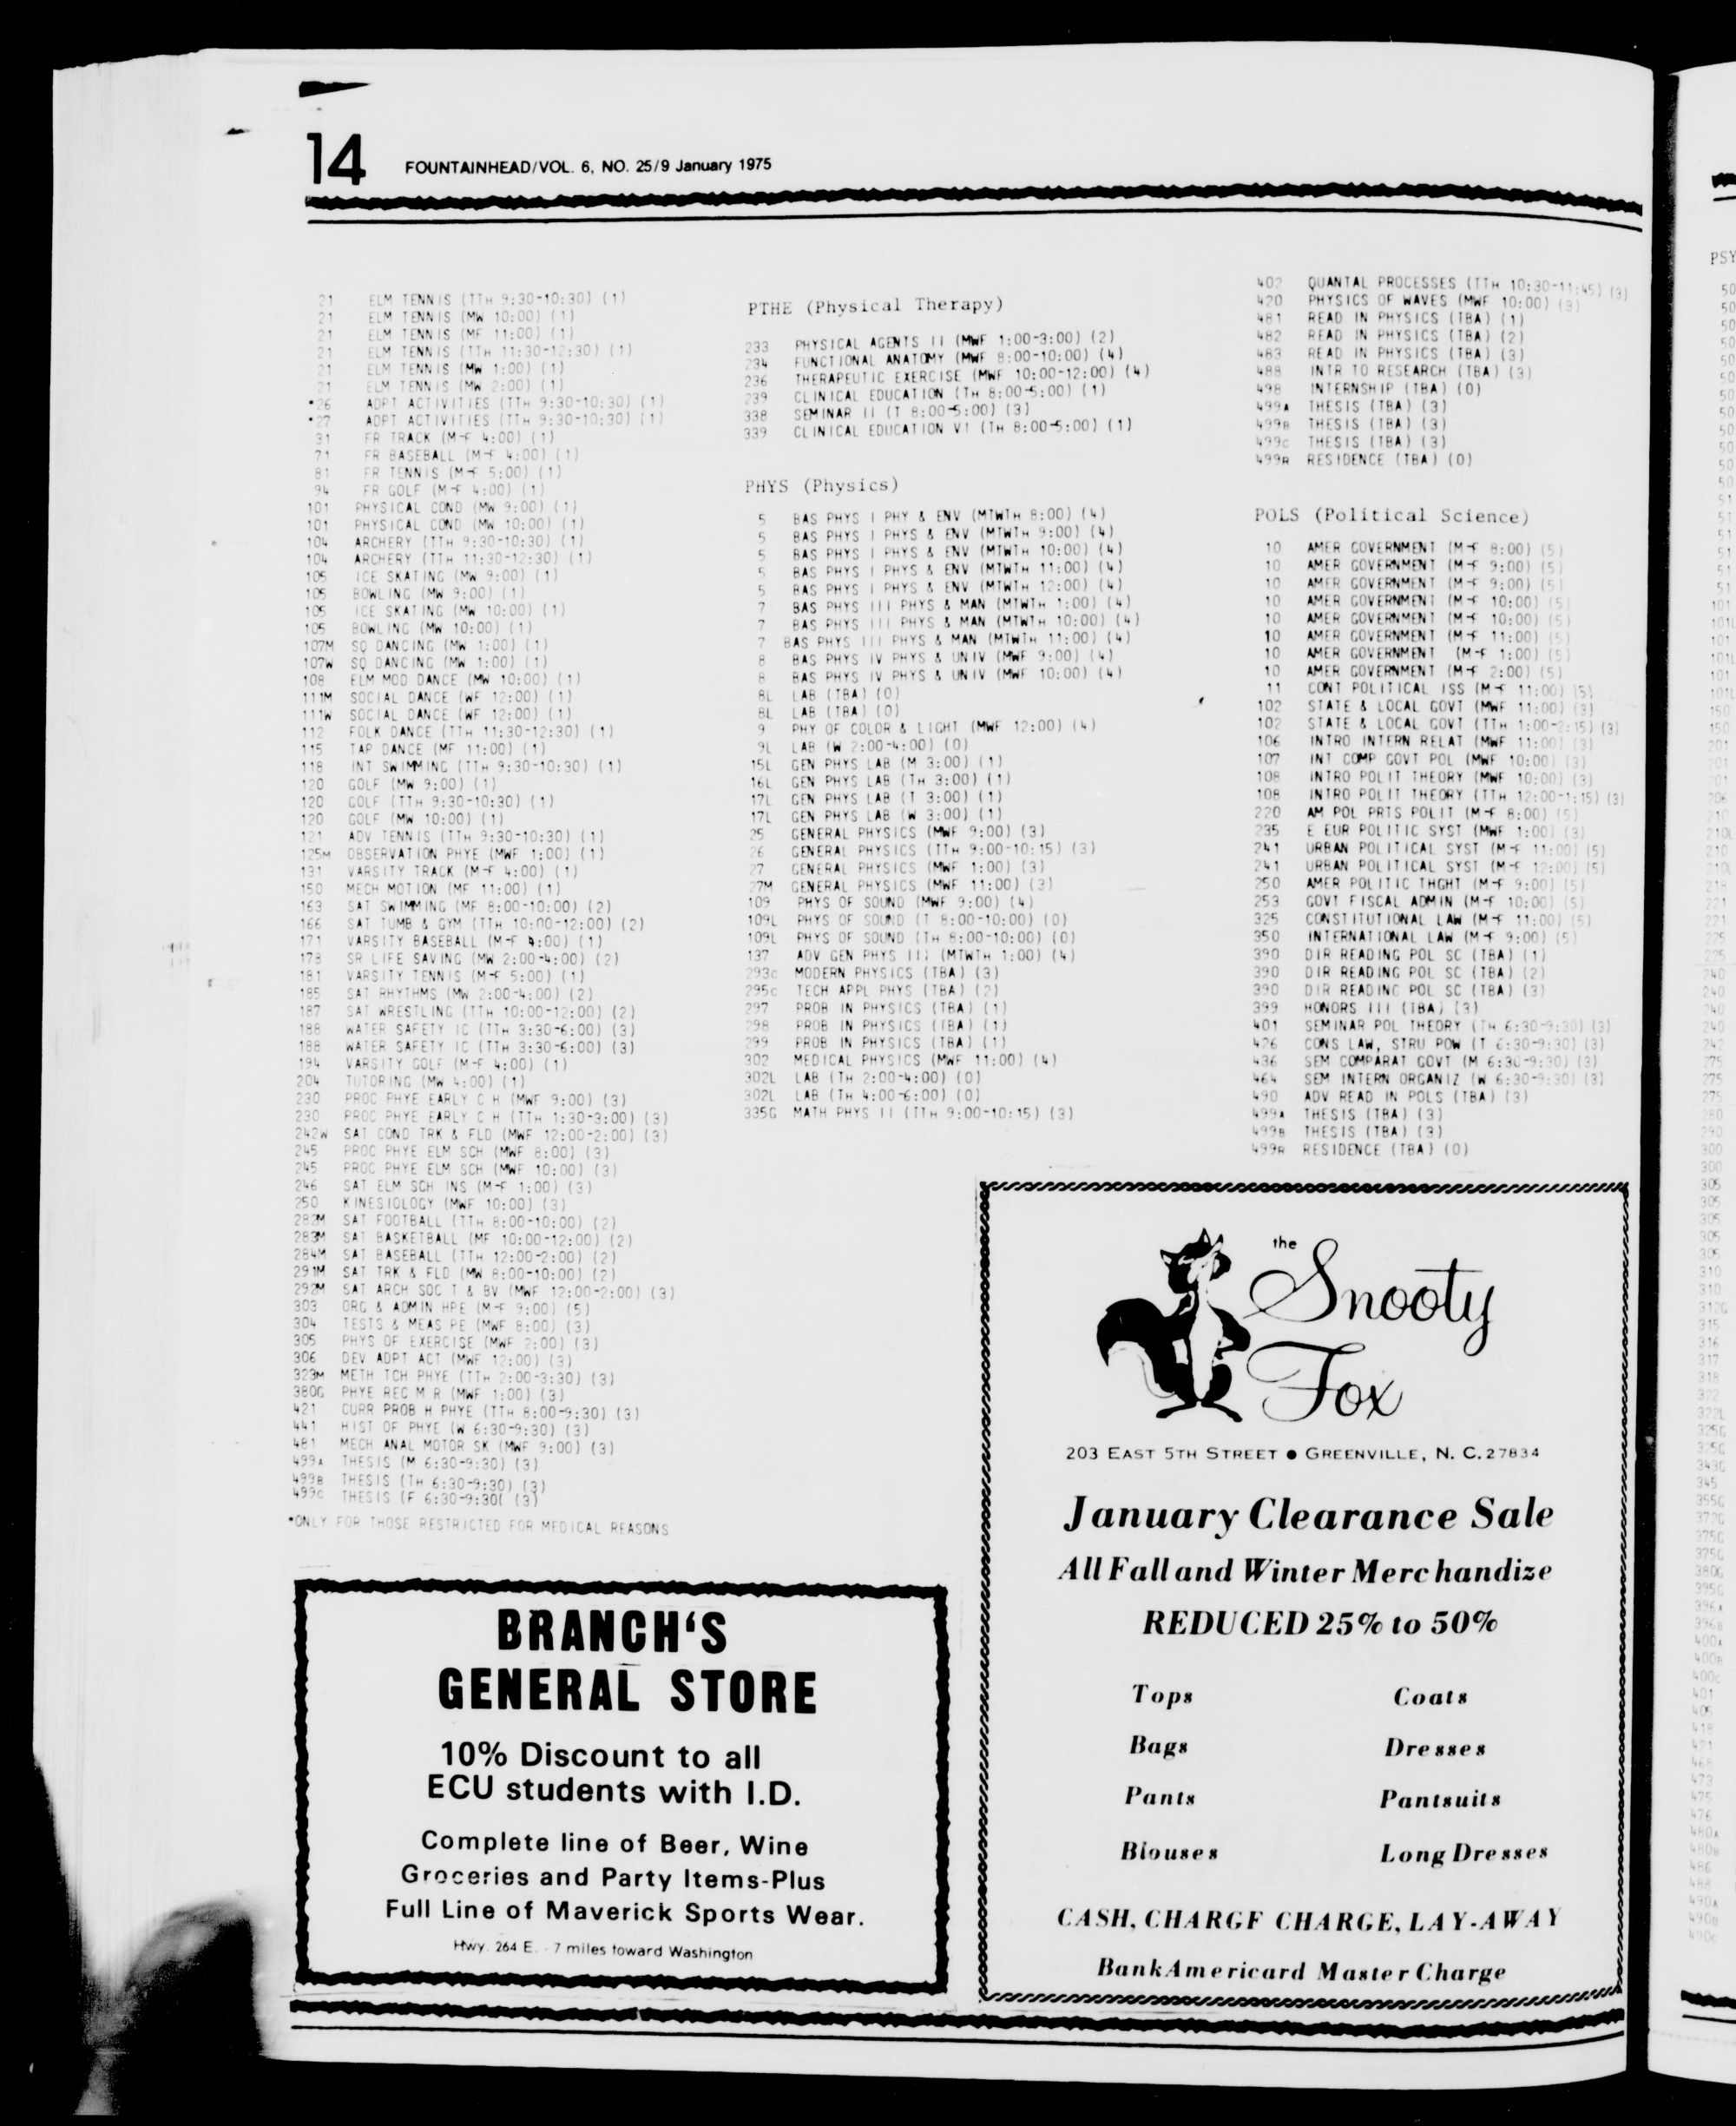 14
FOUNTAINHEAD/VOL. 6, NO. 25/9 January 1975
21 ELM TENNIS (TTH 9:30-10:30) (1)
21 ELM TENNIS (MW 10:00) (1)
21 ELM TENNIS (MF 11:00) (1)
21 ELM TENNIS (TTH 11:30-12:30) (1)
21 ELM TENNIS (MW 1:00) (1)
21 ELM TENNIS (MW 2:00) (1)
*26 ADPT ACTIVITIES (TTH 9:30-10:30) (1)
*27 ADPT ACTIVITIES (TTH 9:30-10:30) (1)
31 FR TRACK (M-F 4:00) (1)
71 FR BASEBALL (M-F 4:00) (1)
81 FR TENNIS (M-F 5:00) (1)
94 FR GOLF (M-F 4:00) (1)
101 PHYSICAL COND (MW 9:00) (1)
101 PHYSICAL COND (MW 10:00) (1)
104 ARCHERY (TTH 9:30-10:30) (1)
104 ARCHERY (TTH 11:30-12:30) (1)
105 ICE SKATING (MW 9:00) (1)
105 BOWLING (MW 9:00) (1)
105 ICE SKATING (MW 10:00) (1)
105 BOWLING (MW 10:00) (1)
107M SQ DANCING (MW 1:00) (1)
107W SQ DANCING (MW 1:00) (1)
108 ELM MOD DANCE (MW 10:00) (1)
111M SOCIAL DANCE (WF 12:00) (1)
111W SOCIAL DANCE (WF 12:00) (1)
112 FOLK DANCE (TTH 11:30-12:30) (1)
115 TAP DANCE (MF 11:00) (1)
118 INT SWIMMING (TTH 9:30-10:30) (1)
120 GOLF (MW 9:00) (1)
120 GOLF (TTH 9:30-10:30) (1)
120 GOLF (MW 10:00) (1)
121 ADV TENNIS (TTH 9:30-10:30) (1)
125M OBSERVATION PHYE (MWF 1:00) (1)
131 VARSITY TRACK (M-F 4:00) (1)
150 MECH MOTION (MF 11:00) (1)
163 SAT SWIMMING (MF 8:00-10:00) (2)
166 SAT TUMB & GYM (TTH 10:00-12:00) (2)
171 VARSITY BASEBALL (M-F 4:00) (1)
178 SR LIFE SAVING (MW 2:00-4:00) (2)
181 VARSITY TENNIS (M-F 5:00) (1)
185 SAT RHYTHMS (MW 2:00-4:00) (2)
187 SAT WRESTLING (TTH 10:00-12:00) (2)
188 WATER SAFETY IC (TTH 3:30-6:00) (3)
188 WATER SAFETY IC (TTH 3:30-6:00) (3)
194 VARSITY GOLF (M-F 4:00) (1)
204 TUTORING (MW 4:00) (1)
230 PROC PHYE EARLY C H (MWF 9:00) (3)
230 PROC PHYE EARLY C H (TTH 1:30-3:00) (3)
242W SAT COND TRK & FLD (MWF 12:00-2:00) (3)
245 PROC PHYE ELM SCH (MWF 8:00) (3)
245 PROC PHYE ELM SCH (MWF 10:00) (3)
246 SAT ELM SCH INS (M-F 1:00) (3)
250 KINESIOLOGY (MWF 10:00) (3)
282M SAT FOOTBALL (TTH 8:00-10:00) (2)
283M SAT BASKETBALL (MF 10:00-12:00) (2)
284M SAT BASEBALL (TTH 12:00-2:00) (2)
291M SAT TRK & FLD (MW 8:00-10:00) (2)
292M SAT ARCH SOC T & BV (MWF 12:00-2:00) (3)
303 ORG & ADMIN HPE (M-F 9:00) (5)
304 TESTS & MEAS PE (MWF 8:00) (3)
305 PHYS OF EXERCISE (MWF 2:00) (3)
306 DEV ADPT ACT (MWF 12:00) (3)
323M METH TCH PHYE (TTH 2:00-3:30) (3)
380G PHYE REC M R (MWF 1:00) (3)
421 CURR PROB H PHYE (TTH 8:00-9:30) (3)
441 HIST OF PHYE (W 6:30-9:30) (3)
481 MECH ANAL MOTOR SK (MWF 9:00) (3)
499A THESIS (M 6:30-9:30) (3)
499B THESIS (TH 6:30-9:30) (3)
499C THESIS (F 6:30-9:30( (3)
*ONLY FOR THOSE RESTRICTED FOR MEDICAL REASONS
PTHE (Physical Therapy)
233 PHYSICAL AGENTS II (MWF 1:00-3:00) (2)
234 FUNCTIONAL ANATOMY (MWF 8:00-10:00) (4)
236 THERAPEUTIC EXERCISE (MWF 10:00-12:00) (4)
239 CLINICAL EDUCATION (TH 8:00-5:00) (1)
338 SEMINAR II (T 8:00-5:00) (3)
339 CLINICAL EDUCATION VI (TH 8:00-5:00) (1)
PHYS (Physics)
5 BAS PHYS I PHY & ENV (MTWTH 8:00) (4)
5 BAS PHYS I PHYS & ENV (MTWTH 9:00) (4)
5 BAS PHYS I PHYS & ENV (MTWTH 10:00) (4)
5 BAS PHYS I PHYS & ENV (MTWTH 11:00) (4)
5 BAS PHYS I PHYS & ENV (MTWTH 12:00) (4)
7 BAS PHYS III PHYS & MAN (MTWTH 1:00) (4)
7 BAS PHYS III PHYS & MAN (MTWTH 10:00) (4)
7 BAS PHYS III PHYS & MAN (MTWTH 11:00) (4)
8 BAS PHYS IV PHYS & UNIV (MWF 9:00) (4)
8 BAS PHYS IV PHYS & UNIV (MWF 10:00) (4)
8L LAB (TBA) (0)
8L LAB (TBA) (0)
9 PHY OF COLOR & LIGHT (MWF 12:00) (4)
9L LAB (W 2:00-4:00) (0)
15L GEN PHYS LAB (M 3:00) (1)
16L GEN PHYS LAB (TH 3:00) (1)
17L GEN PHYS LAB (T 3:00) (1)
17L GEN PHYS LAB (W 3:00) (1)
25 GENERAL PHYSICS (MWF 9:00) (3)
26 GENERAL PHYSICS (TTH 9:00-10:15) (3)
27 GENERAL PHYSICS (MWF 1:00) (3)
27M GENERAL PHYSICS (MWF 11:00) (3)
109 PHYS OF SOUND (MWF 9:00) (4)
109L PHYS OF SOUND (T 8:00-10:00) (0)
109L PHYS OF SOUND (TH 8:00-10:00) (0)
137 ADV GEN PHYS III (MTWTH 1:00) (4)
293C MODERN PHYSICS (TBA) (3)
295C TECH APPL PHYS (TBA) (2)
297 PROB IN PHYSICS (TBA) (1)
298 PROB IN PHYSICS (TBA) (1)
299 PROB IN PHYSICS (TBA) (1)
302 MEDICAL PHYSICS (MWF 11:00) (4)
302L LAB (TH 2:00-4:00) (0)
302L LAB (TH 4:00-6:00) (0)
335G MATH PHYS II (TTH 9:00-10:15) (3)
402 QUANTAL PROCESSES (TTH 10:30-11:45) (3)
420 PHYSICS OF WAVES (MWF 10:00) (3)
481 READ IN PHYSICS (TBA) (1)
482 READ IN PHYSICS (TBA) (2)
483 READ IN PHYSICS (TBA) (3)
488 INTR TO RESEARCH (TBA) (3)
498 INTERNSHIP (TBA) (0)
499A THESIS (TBA) (3)
499B THESIS (TBA) (3)
499C THESIS (TBA) (3)
499R RESIDENCE (TBA) (0)
POLS (Political Science)
10 AMER GOVERNMENT (M-F 8:00) (5)
10 AMER GOVERNMENT (M-F 9:00) (5)
10 AMER GOVERNMENT (M-F 9:00) (5)
10 AMER GOVERNMENT (M-F 10:00) (5)
10 AMER GOVERNMENT (M-F 10:00) (5)
10 AMER GOVERNMENT (M-F 11:00) (5)
10 AMER GOVERNMENT (M-F 1:00) (5)
10 AMER GOVERNMENT (M-F 2:00) (5)
11 CONT POLITICAL ISS (M-F 11:00) (5)
102 STATE & LOCAL GOVT (MWF 11:00) (3)
102 STATE & LOCAL GOVT (TTH 1:00-2:15) (3)
106 INTRO INTERN RELAT (MWF 11:00) (3)
107 INT COMP GOVT POL (MWF 10:00) (3)
108 INTRO POLIT THEORY (MWF 10:00) (3)
108 INTRO POLIT THEORY (TTH 12:00-1:15) (3)
220 AM POL PRTS POLIT (M-F 8:00) (5)
235 E EUR POLITIC SYST (MWF 1:00) (3)
241 URBAN POLITICAL SYST (M-F 11:00) (5)
241 URBAN POLITICAL SYST (M-F 12:00) (5)
250 AMER POLITIC THGHT (M-F 9:00) (5)
253 GOVT FISCAL ADMIN (M-F 10:00) (5)
325 CONSTITUTIONAL LAW (M-F 11:00) (5)
350 INTERNATIONAL LAW (M-F 9:00) (5)
390 DIR READING POL SC (TBA) (1)
390 DIR READING POL SC (TBA) (2)
390 DIR READING POL SC (TBA) (3)
399 HONORS III (TBA) (3)
401 SEMINAR POL THEORY (TH 6:30-9:30) (3)
426 CONS LAW, STRU POW (T 6:30-9:30) (3)
436 SEM COMPARAT GOVT (M 6:30-9:30) (3)
464 SEM INTERN ORGANIZ (W 6:30-9:30) (3)
490 ADV READ IN POLS (TBA) (3)
499A THESIS (TBA) (3)
499B THESIS (TBA) (3)
499R RESIDENCE (TBA) (0)
BRANCH'S
GENERAL STORE
10% Discount to all
ECU students with I.D.
Complete line of Beer, Wine
Groceries and Party Items-Plus
Full Line of Maverick Sports Wear.
Hwy. 264 E. - 7 miles toward Washington
the
Snooty
Fox
203 EAST 5TH STREET ● GREENVILLE, N. C. 27834
January Clearance Sale
All Fall and Winter Merchandize
REDUCED 25% to 50%
Tops Coats
Bags Dresses
Pants Pantsuits
Blouses Long Dresses
CASH, CHARGF CHARGE, LAY-AWAY
BankAmericard Master Charge
PSY